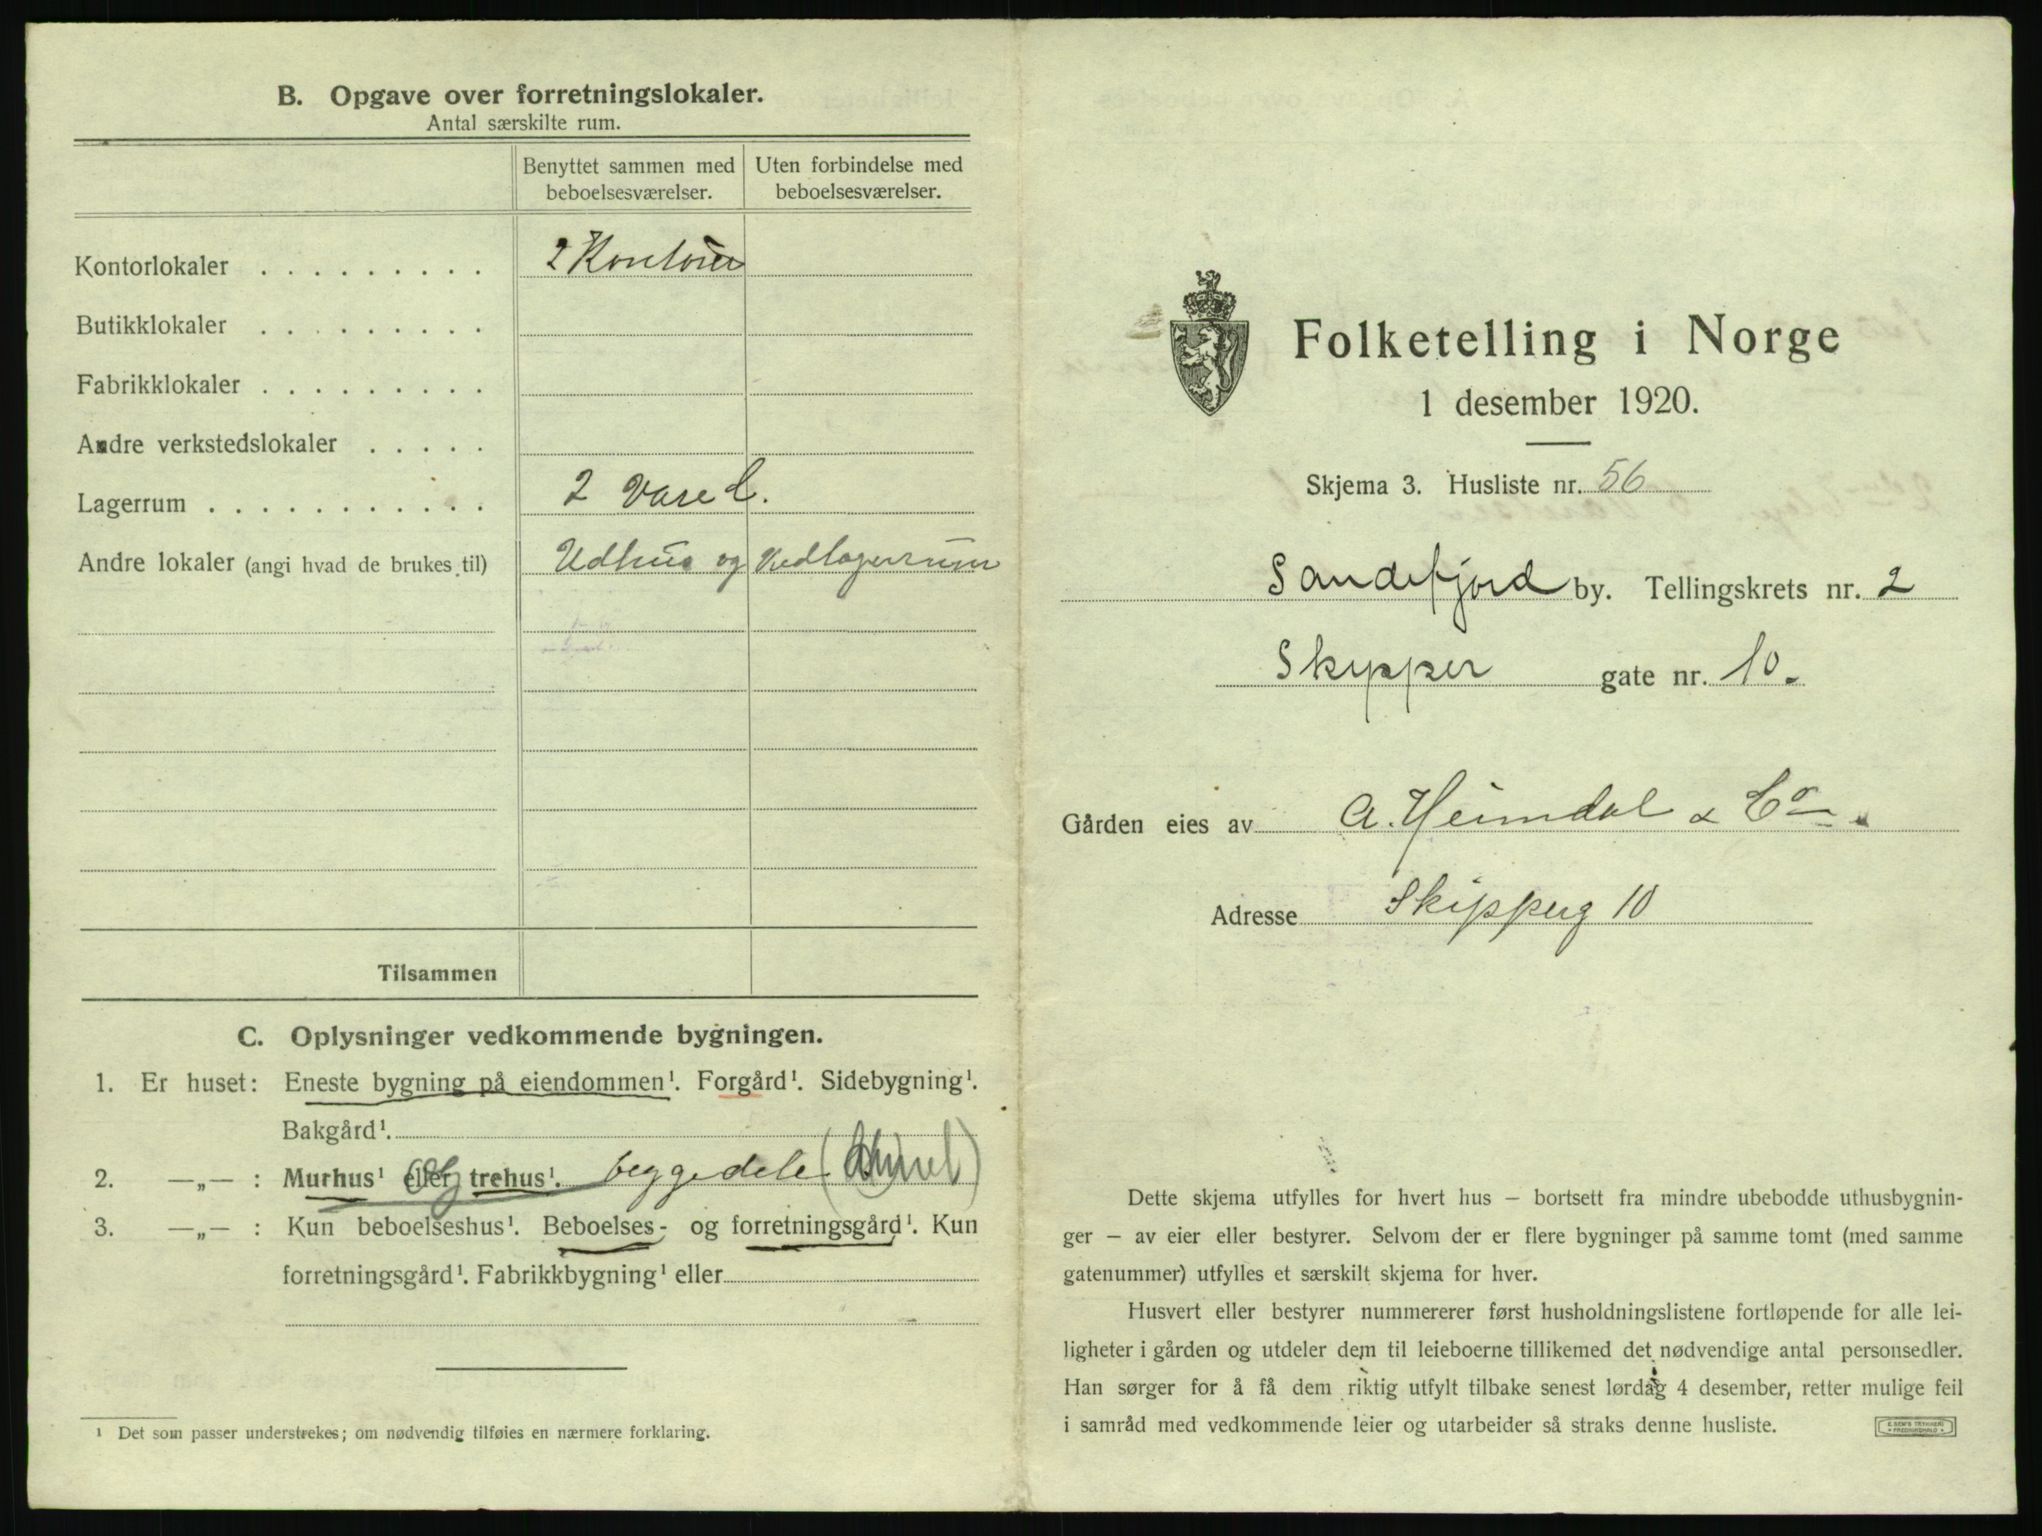 B. Opgave over forretningslokaler.
Antal særskilte rum.
Benyttet sammen med beboelsesværelser.
Uten forbindelse med beboelsesværelser.
Kontorlokaler . . . . . . . . . 2 Kontorer
Butikklokaler . . . . . . . . .
Fabrikklokaler . . . . . . . . .
Andre verkstedslokaler . . . . .
Lagerrum . . . . . . . . . . . 2 Vare L.
Andre lokaler (angi hvad de brukes til) Udhus og Vedlagerrum
Tilsammen
C. Oplysninger vedkommende bygningen.
1. Er huset: Eneste bygning på eiendommen¹. Forgård¹. Sidebygning¹.
Bakgård¹.
2. —„— : Murhus¹ eller trehus¹. beggedele
3. —„— : Kun beboelseshus¹. Beboelses- og forretningsgård¹. Kun
forretningsgård¹. Fabrikkbygning¹ eller
¹ Det som passer understrekes; om nødvendig tilføies en nærmere forklaring.
Folketelling i Norge
1 desember 1920.
Skjema 3. Husliste nr. 56
Sandefjord by. Tellingskrets nr. 2
Skipper gate nr. 10.
Gården eies av A. Heimdal & Co.
Adresse Skipperg 10
Dette skjema utfylles for hvert hus – bortsett fra mindre ubebodde uthusbygnin-
ger – av eier eller bestyrer. Selvom der er flere bygninger på samme tomt (med samme
gatenummer) utfylles et særskilt skjema for hver.
Husvert eller bestyrer nummererer først husholdningslistene fortløpende for alle lei-
ligheter i gården og utdeler dem til leieboerne tillikemed det nødvendige antal personsedler.
Han sørger for å få dem riktig utfylt tilbake senest lørdag 4 desember, retter mulige feil
i samråd med vedkommende leier og utarbeider så straks denne husliste.